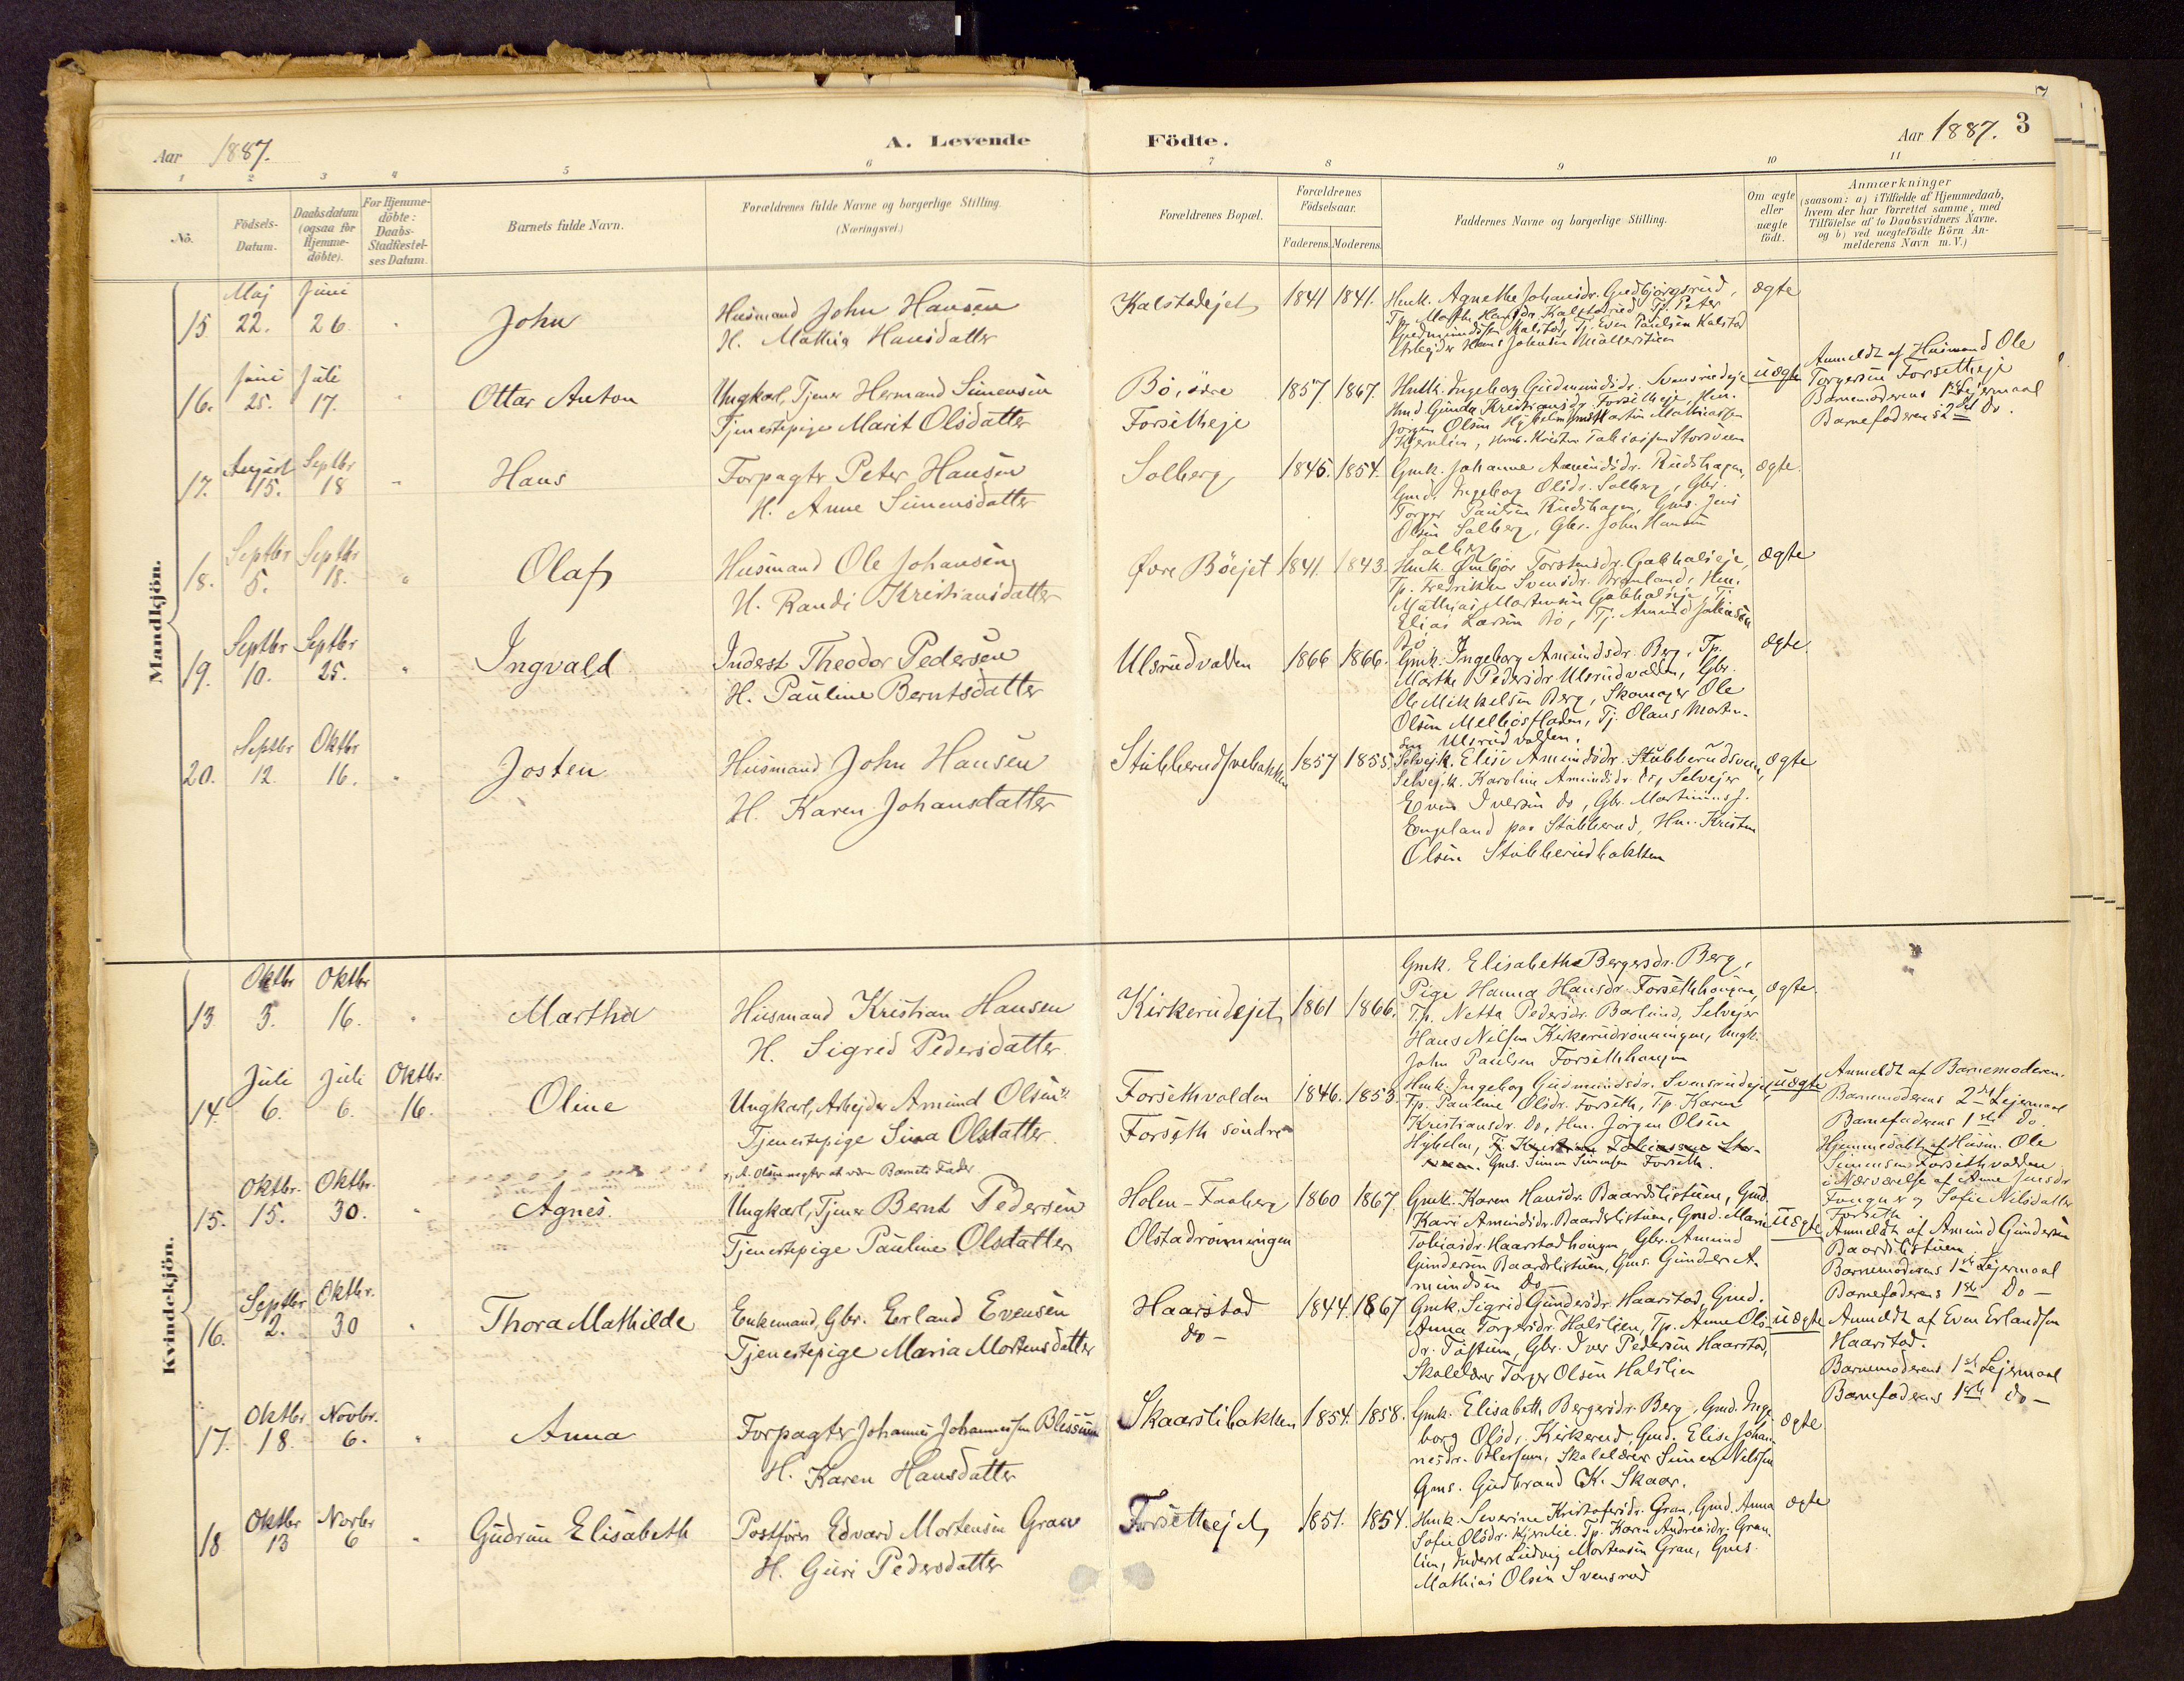 Aar 1887.
A. Levende
Födte.
Aar 1887. 3
1 2 3 4 5 6 7 8 9 10 11
No.
Födsels-
Datum.
Daabsdatum
(ogsaa for
Hjemme-
döbte).
For Hjemme-
döbte:
Daabs-
Stadfæstel-
ses Datum.
Barnets fulde Navn.
Forældrenes fulde Navne og borgerlige Stilling.
(Næringsvei.)
Forældrenes Bopæl.
Forældrenes
Födselsaar.
Faderens. Moderens.
Faddernes Navne og borgerlige Stilling.
Om ægte
eller
uægte
födt.
Anmærkninger
(saasom: a) i Tilfælde af Hjemmedaab,
hvem der har forrettet samme, med
Tilföielse af to Daabsvidners Navne.
og b) ved uægtefödte Börn An-
melderens Navn m. V.)
Mandkjön.
Maj Juni
15 22. 26. " John
Husmand John Hansen
H. Mathia Hansdatter
Kalstadejet 1841 1841.
Hmk. Agnethe Johansdr. Gudbjørgsrud,
Tp. Marthe Hansdr. Kalstadrud, Tj. Peter
Gudmundssen Kalstad, Tj. Even Paulsen Kalstad
Arbejder Hans Johnsen
ægte
Juni Juli
16. 25. 17. " Ottar Anton
Ungkarl, Tjener Hermand Simensen
Tjenestepige Marit Olsdatter
Bö, övre
Forsetheje
1857 1867.
Hmk. Ingeborg Gudmundsdr. Svensrudeje
Hmd Gunda Kristiansdr. Forsetheje, Hm.
Jørgen Olsen Martin Mathiassen
Kjernlien, Hms. Kristen Tobiassen Storsveen
uægte
Anmeldt af Husmand Ole
Torgersen Forsetheje
Barnemoderens 1ste Lejermaal
Barnefaderens 2det do.
August Septbr
17. 15. 18 " Hans
Forpagtr Peter Hansen
H. Anne Simensdatter
Solberg 1845. 1854.
Gmk. Johanne Amundsdr. Rudshagen,
Gmd. Ingeborg Olsdr. Solberg, Gbr.
Torger Paulsen Rudshagen, Gms. Jens
Olsen Solberg, Gbr. John Hansen
Solberg
ægte.
Septbr Septbr
18. 5. 18. " Olaf
Husmand Ole Johansen
H. Randi Kristiansdatter
Øvre Böejet 1841. 1843.
Hmk. Ønbjør Torstensdr. Gabhalseje,
Tp. Fredrikke Svensdr. Brunland, Hm.
Mathias Mortensen Gabhalseje, Tj.
Elias Larsen Bö, Tj. Amund Johansen
Bö
ægte
Septbr Septbr
19. 10. 25. " Ingvald
Inderst Theodor Pedersen
H. Pauline Berntsdatter
Ulsrudvolden 1866 1866.
Gmk. Ingeborg Amundsdr. Berg, Tp.
Marthe Pedersdr. Ulsrudvolden, Gbr.
Ole Mikkelsen Berg, Skomager Ole
Olsen Melbösfladen, Tj. Olaus Morten-
sen Ulsrudvolden.
ægte.
Septbr Oktbr
20. 12. 16. " Josten
Husmand John Hansen
H. Karen Johansdatter
Stubberudsvebakken 1857 1855.
Selvejk. Elise Amundsdr. Stubberudsveen,
Selvejk. Karoline Amundsdr. do, Selvejer
Even Iversen do, Gbr. Martinus J.
Engeland paa Stubberud, Hm. Kristen
Olsen Stubberudbakken
ægte
Kvindekjön.
Oktbr Oktbr
13 3. 16. " Martha
Husmand Kristian Hansen
H. Sigrid Pedersdatter
Kirkerudejet 1861 1866.
Gmk. Elisabethe Bergersdr. Berg,
Pige Hanna Hansdr. Forsethhougen,
Tp. Netta Pedersdr. Barlund, Selvejer
Hans Nilsen Kirkerudrönningen, Ungk.
John Paulsen Forsethhaugen
ægte.
Juli Juli Oktbr.
14. 6. 6. 16. Oline
Ungkarl, Arbejder Amund Olsen x)
Tjenestepige Sina Olsdatter.
x) A. Olsen negter at være Barnets Fader
Forsethvolden
Forseth söndre
1846. 1853.
Hmk. Ingeborg Gudmundsdr. Svensrudejet,
Tp. Pauline Olsdr. Forseth, Tp. Karen
Kristiansdr. Do, Hm. Jörgen Olsen
Hybelen, Tj. Kristian Tobiassen Stor-
sveen. Gms. Simen Simensen Forseth.
uægte
Anmeldt af Barnemoderen.
Barnemoderens 2det Lejermaal
Barnefaderens 1ste Do.
Hjemmedöbt af Husm. Ole
Simensen Forsethvolden
i Nærværelse af Anne Jensdr
Fougner og Sofie Nilsdatter
Forseth
Oktbr. Oktbr.
15. 15. 30. " Agnes.
Ungkarl, Tjener Bernt Pedersen
Tjenestepige Pauline Olsdatter
Holen - Faaberg
Olstadrönningen
1860 1867.
Gmk. Karen Hansdr. Baardslistuen, Gmd.
Kari Amundsdr. Baardslistuen, Gmd. Marie
Tobiasdr. Haarstadhougen, Gbr. Amund
Gundersen Baardslistuen, Gms. Gunder A-
mundsen Do
uægte
Anmeldt af Amund Gundersen
Baardslistuen
Barnemoderens 1ste Lejermaal
Barnefaderens 1ste Do -
Septbr Oktbr.
16. 2. 30 " Thora Mathilde
Enkemand, Gbr. Erland Evensen
Tjenestepige Maria Mortensdatter
Haarstad
do -
1844. 1867
Gmk. Sigrid Gundersdr. Haarstad, Gmd.
Anna Torgersdr. Halslien, Tp. Anne Ols-
dr. Töfstuen, Gbr. Iver Pedersen Haarstad,
Skolelærer Torger Olsen Halslien
uægte
Anmeldt af Even Erlandsen
Haarstad.
Barnemoderens 1ste Lejermaal
Barnefaderens 1ste do -
Oktbr Novbr.
17. 18. 6. " Anna
Forpagter Johannes Johannessen Blessum
H. Karen Hansdatter
Skaarslibakken 1854. 1858.
Gmk. Elisabeth Bergersdr. Berg, Gmd. Inge-
borg Olsdr. Kirkerud, Gmd. Elise Johan-
nesdr. Blessum, Skolelærer Simen Nilssen
Gms. Gudbrand K. Skaar.
ægte.
Oktbr Novbr
18 13 6 " Gudrun Elisabeth
Postförer Edvard Mortensen Grau
H. Guri Pedersdatter
Forsethejet 1851. 1854.
Hmk. Severine Kristofersdr. Grau, Gmd. Anna
Sofie Olsdr. Kjernlie. Tp. Karen Andreasdr. Grau-
lien, Inderst Ludvig Mortensen Grau, Gms.
Mathias Olsen Svensrud
ægte